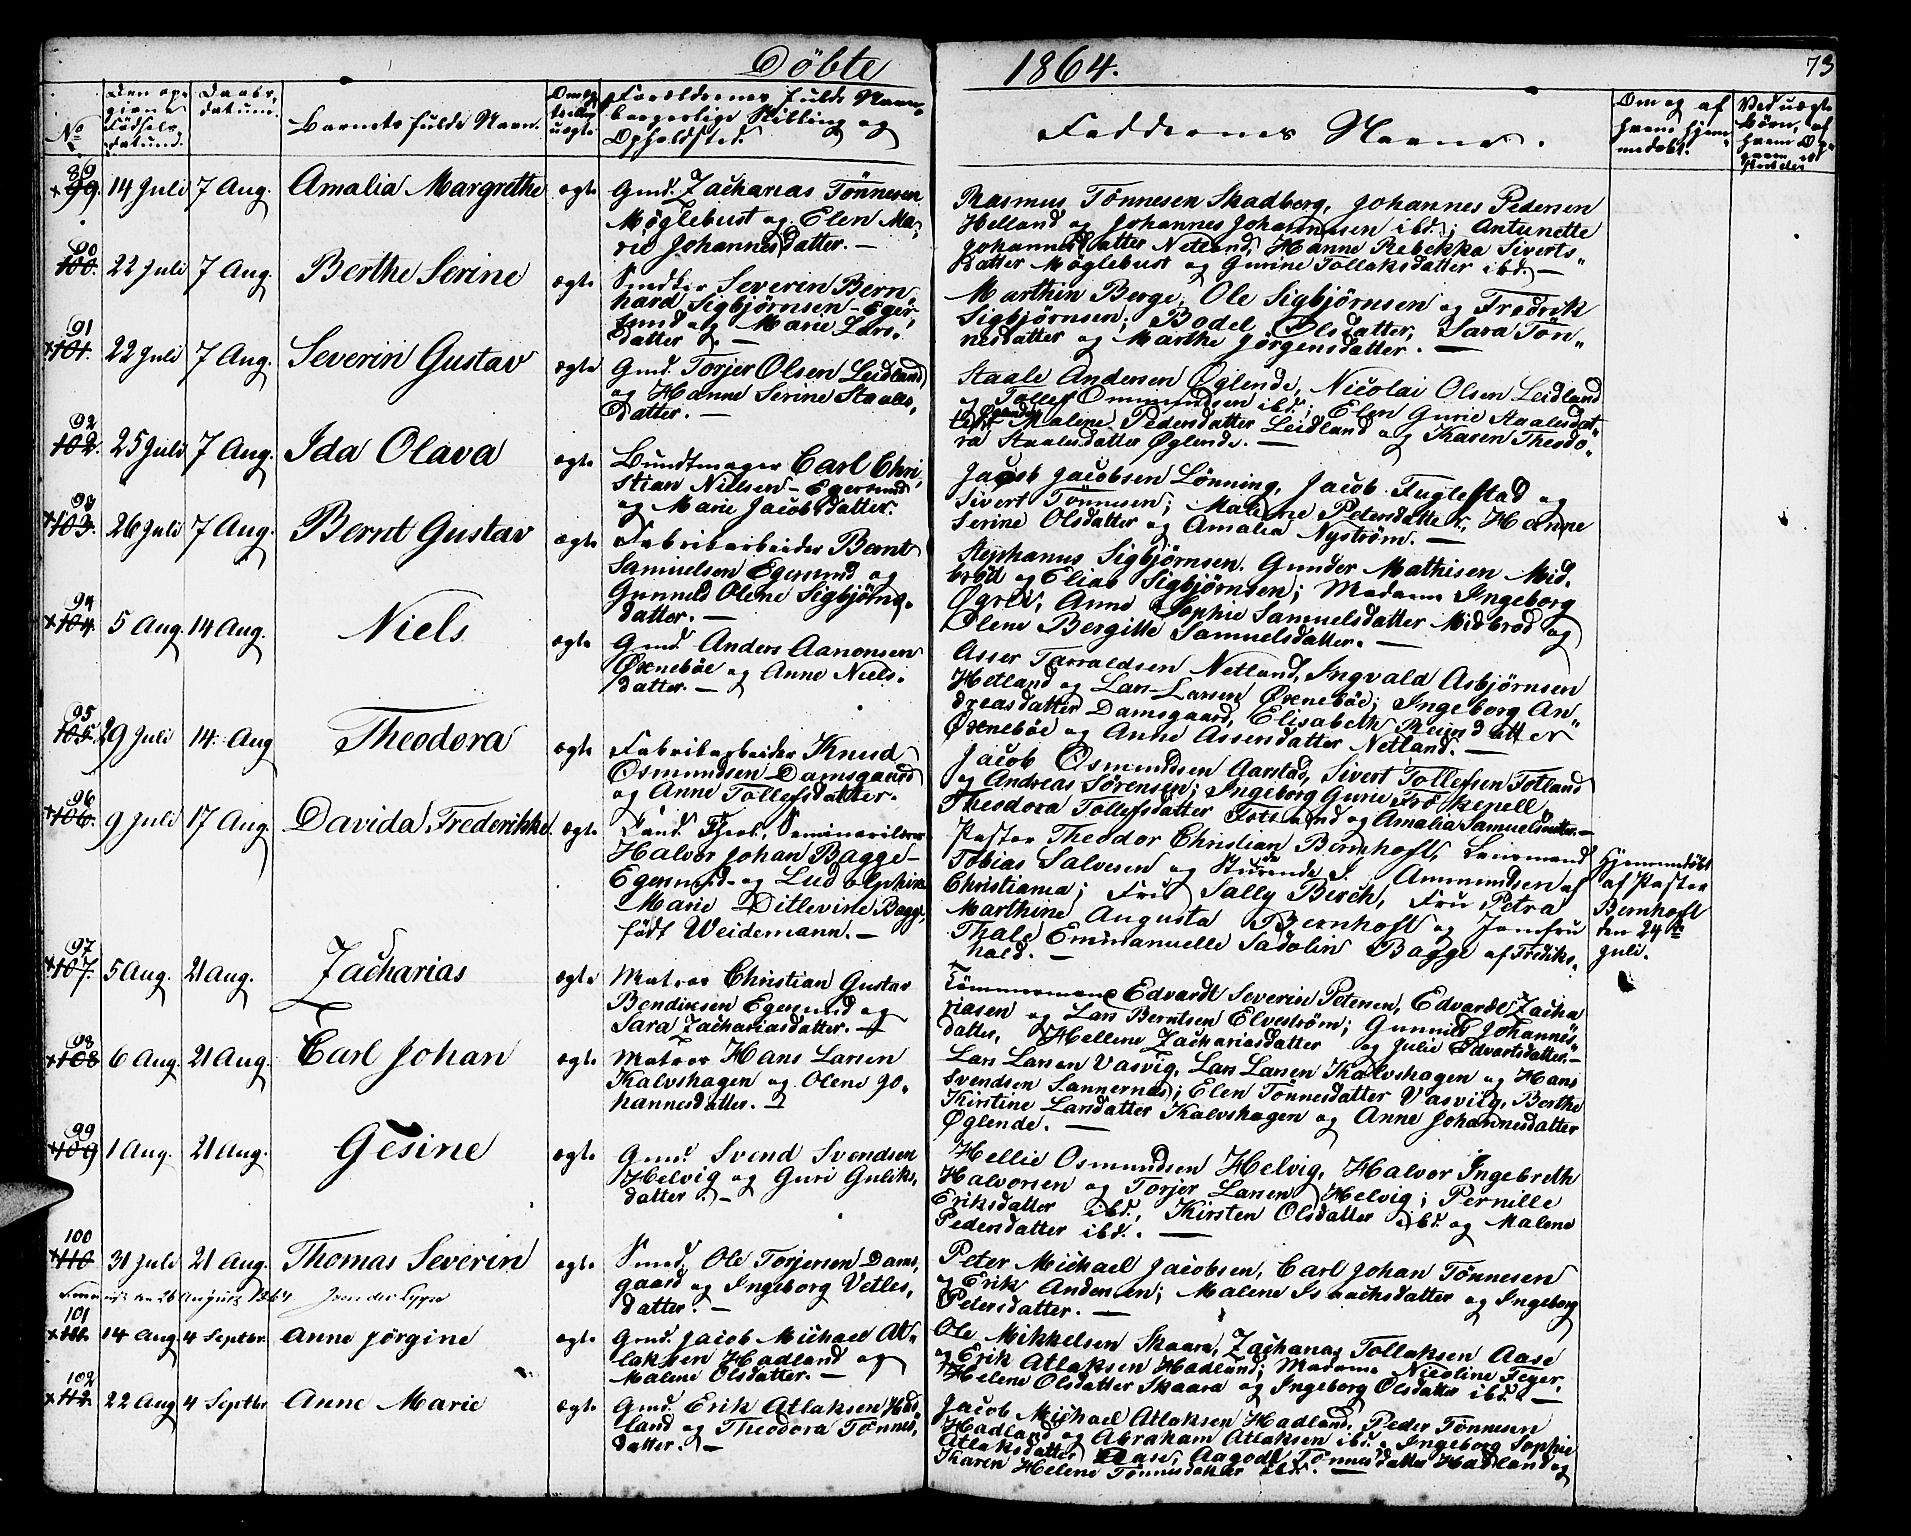 Döbte 1864. 73
No
Den op-
givne
Födsels-
datum.
Daabs-
datum.
Barnets fulde Navn.
Om ægte
eller
uægte
Forældrenes fulde Navn
borgerlige Stilling og
Opholdsted.
Faddernes Navne.
Om og af
hvem hjem-
medöbt.
Ved uægte
Börn, af
hvem
89
× 99 14 Juli 7 Aug. Amalia Margrethe ægte
Gmd. Zacharias Tönnesen
Möglebust og Elen Ma-
rie Johannesdatter. —
Rasmus Tönnesen Skadberg, Johannes Pedersen
Helland og Johannes Johannesen ibd.; Antonette
Johannesdatter Netland, Hanne Rebekka Siverts-
datter Möglebust og Gurine Tollaksdatter ibd. —
90
100. 22 Juli 7 Aug. Berthe Serine ægte
Smed Severin Bern-
hard Sigbjörnsen - Eger-
sund og Marie Lars-
datter. —
Marthin Berge, Ole Sigbjörnsen og Fredrik
Sigbjörnsen; Bodel Olsdatter, Sara Tön-
nesdatter og Marthe Jörgensdatter. —
91
×101. 22 Juli 7 Aug. Severin Gustav ægte
Gmd. Torjer Olsen Leidland
og Hanne Serine Staales-
datter. —
Staale Andersen Øglende, Nicolai Olsen Leidland
og Tollef Ommundsen ibd.; Elen Gurie Staalesdat-
ter Øglende, Malene Pedersdatter Leidland og Karen Theodo-
ra Staalesdatter Øglende. —
92
102. 25 Juli 7 Aug. Ida Olava ægte
Bundtmager Carl Chri-
stian Nielsen - Egersund
og Marie Jacobsdatter.
Jacob Jacobsen Lönning, Jacob Fuglestad og
Sivert Tönnesen; Malene Petersdatter, Hanne
Serine Olsdatter og Amalia Nyström. —
93
×103. 26 Juli 7 Aug. Bernt Gustav ægte
Fabrikarbeider Bernt
Samuelsen Egersund og
Gunnild Olene Sigbjörns-
datter. —
Stephanus Sigbjörnsen, Gunder Mathisen Mid-
bröd og Elias Sigbjörnsen; Madame Ingeborg
Øgrei, Anne Sophie Samuelsdatter Midbröd og
Olene Bergitte Samuelsdatter. —
94
×104. 5 Aug. 14 Aug. Niels ægte
Gmd. Anders Aanonsen
Øxnebøe og Anne Niels-
datter. —
Asser Tarraldsen Netland, Ingvald Asbjörnsen
Hetland og Lars Larsen Øxnebøe; Ingeborg An-
dreasdatter Damsgaard, Elisabeth Reinertsdatter
Øxnebøe og Anne Assersdatter Netland. —
95
105. 29 Juli 14. Aug Theodora ægte
Fabrikarbeider Knud
Osmundsen Damsgaard
og Anne Tollefsdatter.
Jacob Osmundsen Aarstad, Sivert Tollefsen Totland
og Andreas Sörensen; Ingeborg Gurie Fröskepell,
Theodora Tollefsdatter Totland og Amalia Samuelsdatter. —
96
×106. 9 Juli 17 Aug. Davida Frederikke ægte
Cand. Theol., Seminarilærer
Halvor Johan Bagge -
Egersund og Ludolphine
Marie Ditlevine Bagge,
født Weidemann. —
Pastor Theodor Christian Bernhoft, Lensmand
Tobias Salvesen og Studende S. Ammundsen af
Christiania; Fru Sally Berch, Fru Petra
Marthine Augusta Bernhoft og Jomfru
Thale Emmanuelle Sadolin Bagge af Frediks-
hald. —
Hjemmedöbt
af Pastor
Bernhoft
den 24de
Juli.
97
×107. 5 Aug. 21 Aug. Zacharias ægte
Matros Christian Gustav
Bendiksen Egersund og
Sara Zachariasdatter. —
Tömmermand Edvardt Severin Petersen, Edvardt Zacha-
riasen og Lars Berntsen Elveström; Gunnild Johannes-
datter, Hellene Zachariasdatter og Julie Edvartsdatter. —
98
×108 6 Aug. 21 Aug. Carl Johan ægte
Matros Hans Larsen
Kalvshagen og Olene Jo-
hannesdatter. —
Lars Larsen Vasvig, Lars Larsen Kalvshagen og Hans
Svendsen Sannernæs; Elen Tönnesdatter Vasvig, Berthe
Kirstine Larsdatter Kalvshagen og Anne Johannesdatter
Øglende. —
99
×109 1 Aug. 21 Aug. Gesine ægte
Gmd. Svend Svendsen
Helvig og Guri Guliks-
datter. —
Hellie Osmundsen Helvig, Halvor Ingebreth
Halvorsen og Torjer Larsen Helvig; Pernille
Eriksdatter ibd., Kirsten Olsdatter ibd. og Malene
Pedersdatter ibd. —
100
×110 31 Juli 21 Aug. Thomas Severin ægte
Smed, Ole Torjersen Dams-
gaard og Ingeborg Vetles-
datter. —
Peter Michael Jacobsen, Carl Johan Tönnesen
og Erik Andersen; Malene Isaachsdatter og Ingeborg
Petersdatter. —
26 August 1864
101
×111. 14 Aug 4 Septbr. Anne Jörgine ægte
Gmd. Jacob Michael At-
laksen Hadland og
Malene Olsdatter. —
Ole Mikkelsen Skaara, Zacharias Tollaksen Aase
og Erik Atlaksen Hadland; Madame Nicoline Feyer,
Helene Olsdatter Skaara og Ingeborg Olsdatter ibd. —
102
×112. 22 Aug 4 Septbr Anne Marie ægte
Gmd. Erik Atlaksen Had-
land og Theodora Tönnes-
datter. —
Jacob Michael Atlaksen Hadland, Peder Tönnesen
Hadland og Abraham Atlaksen ibd.; Ingeborg Sophie
Atlaksdatter Aase, Aagodt Tönnesdatter Hadland og
Karen Helene Tönnesdatter ibd. —